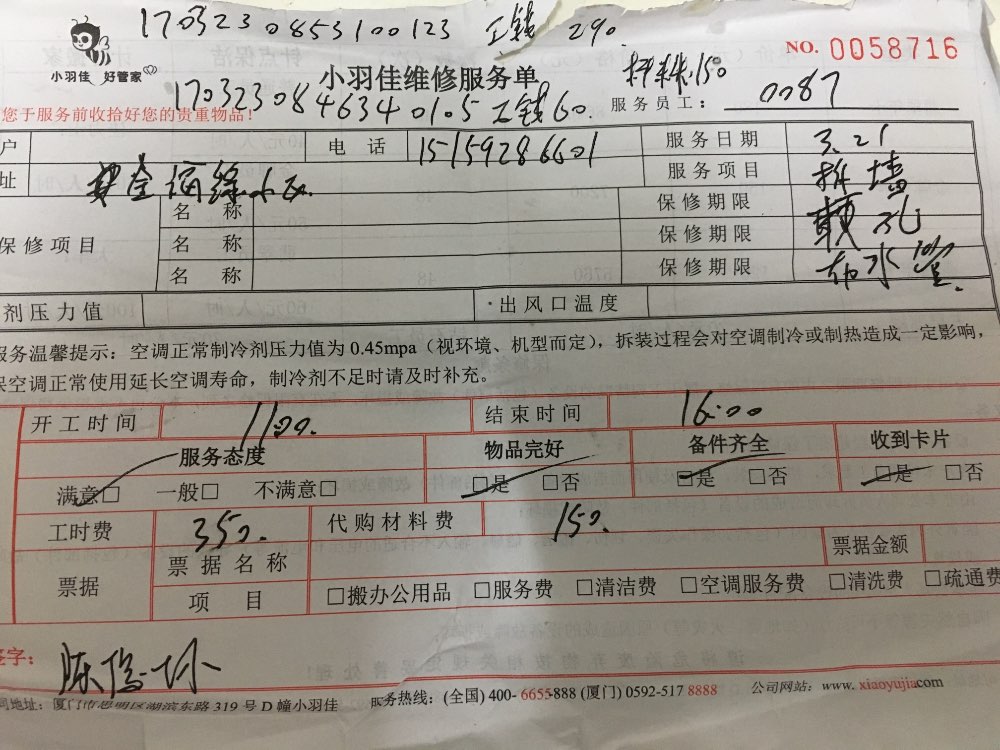 1703230853100123 工钱 290.
NO. 0058716
小羽佳 好管家
小羽佳维修服务单
材料150
您于服务前收拾好您的贵重物品!
17032308463401.5 工钱60.
服务员工: 0087
户 电 话 15159286601 服务日期 3.21
址 服务项目 拆墙
保修项目 名 称 保修期限 孔
名 称 保修期限
名 称 保修期限 水管
剂压力值 出风口温度
服务温馨提示:空调正常制冷剂压力值为 0.45mpa(视环境、机型而定),拆装过程会对空调制冷或制热造成一定影响,
保空调正常使用延长空调寿命,制冷剂不足时请及时补充。
开工时间 1100. 结束时间 16:00
服务态度 物品完好 备件齐全 收到卡片
满意□ 一般□ 不满意□ □是 □否 □是 □否 □是 □否
工时费 350. 代购材料费 150.
票据 票据名称 票据金额
项 目 □搬办公用品 □服务费 □清洁费 □空调服务费 □清洗费 □疏通费
签字:
司地址:厦门市思明区湖滨东路 319 号 D 幢小羽佳 服务热线:(全国) 400- 6655-888 (厦门) 0592-517 8888 公司网站:www. xiaoyujia.com